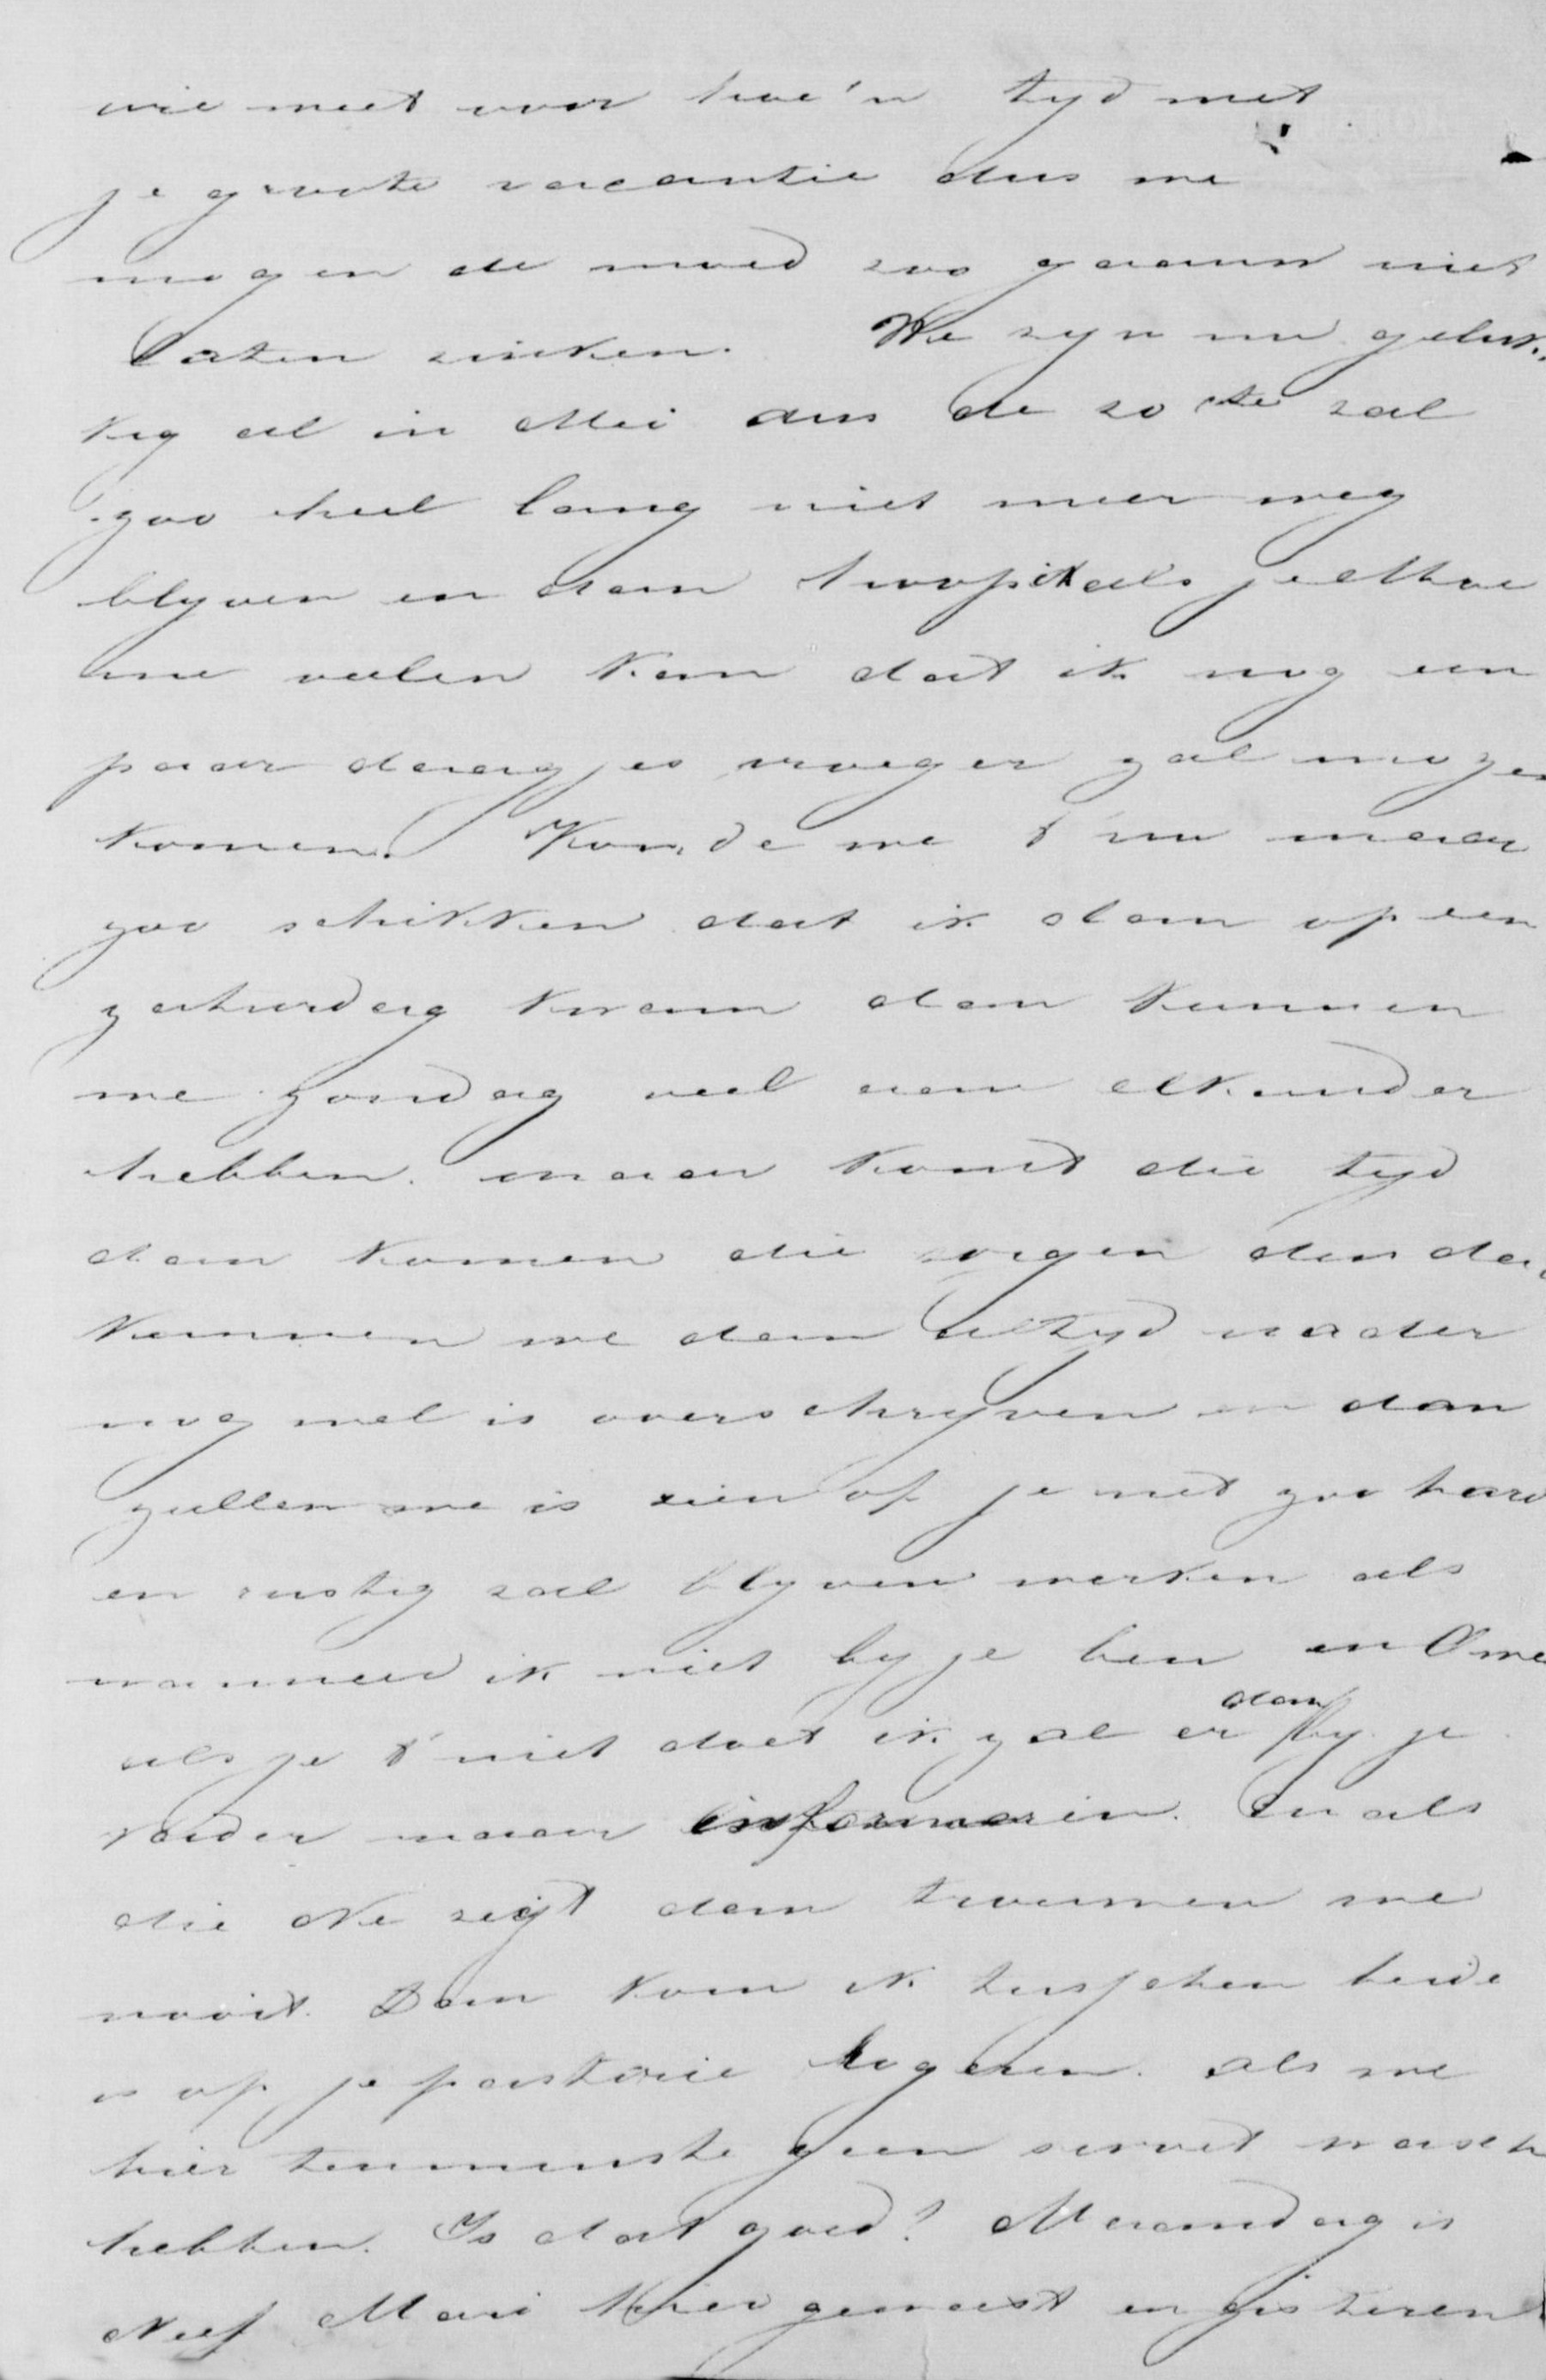 wie weet voor hoe'n tyd met
je groote vacantie dus we
mogen de moed zoo gaauw niet
laten zinken. We zyn nu geluk.
kig al in Mei dus de 20ste zal
zoo heel lang niet meer weg
blyven en dan hoop ik als je
me velen kan dat ik nog een
paar daagjes vroeger zal mogen
komen. Konde we t nu maar
zoo schikken dat ik dan op een
zaturdag kwam dan kunnen
we zondag veel aan elkander
hebben. maar komt die tyd
dan komen die zorgen dus daar
kunnen we dan altyd nader
nog wel is overschryven en dan
zullen we is zien of je net zoo hard
en rustig zal blyven werken als
wanneer ik niet by je ben en O we
als je t niet doet ik zal er dan by je
vader maar informeeren. En als
die Ne zegt dan trouwen we
nooit. Dan kom ik tusschen beide
is op je pastorie logeren. als we
hier tenminste geen servet wasch
hebben. Is dat goed? Maandag is
Neef Mari hier geweest en gisteren